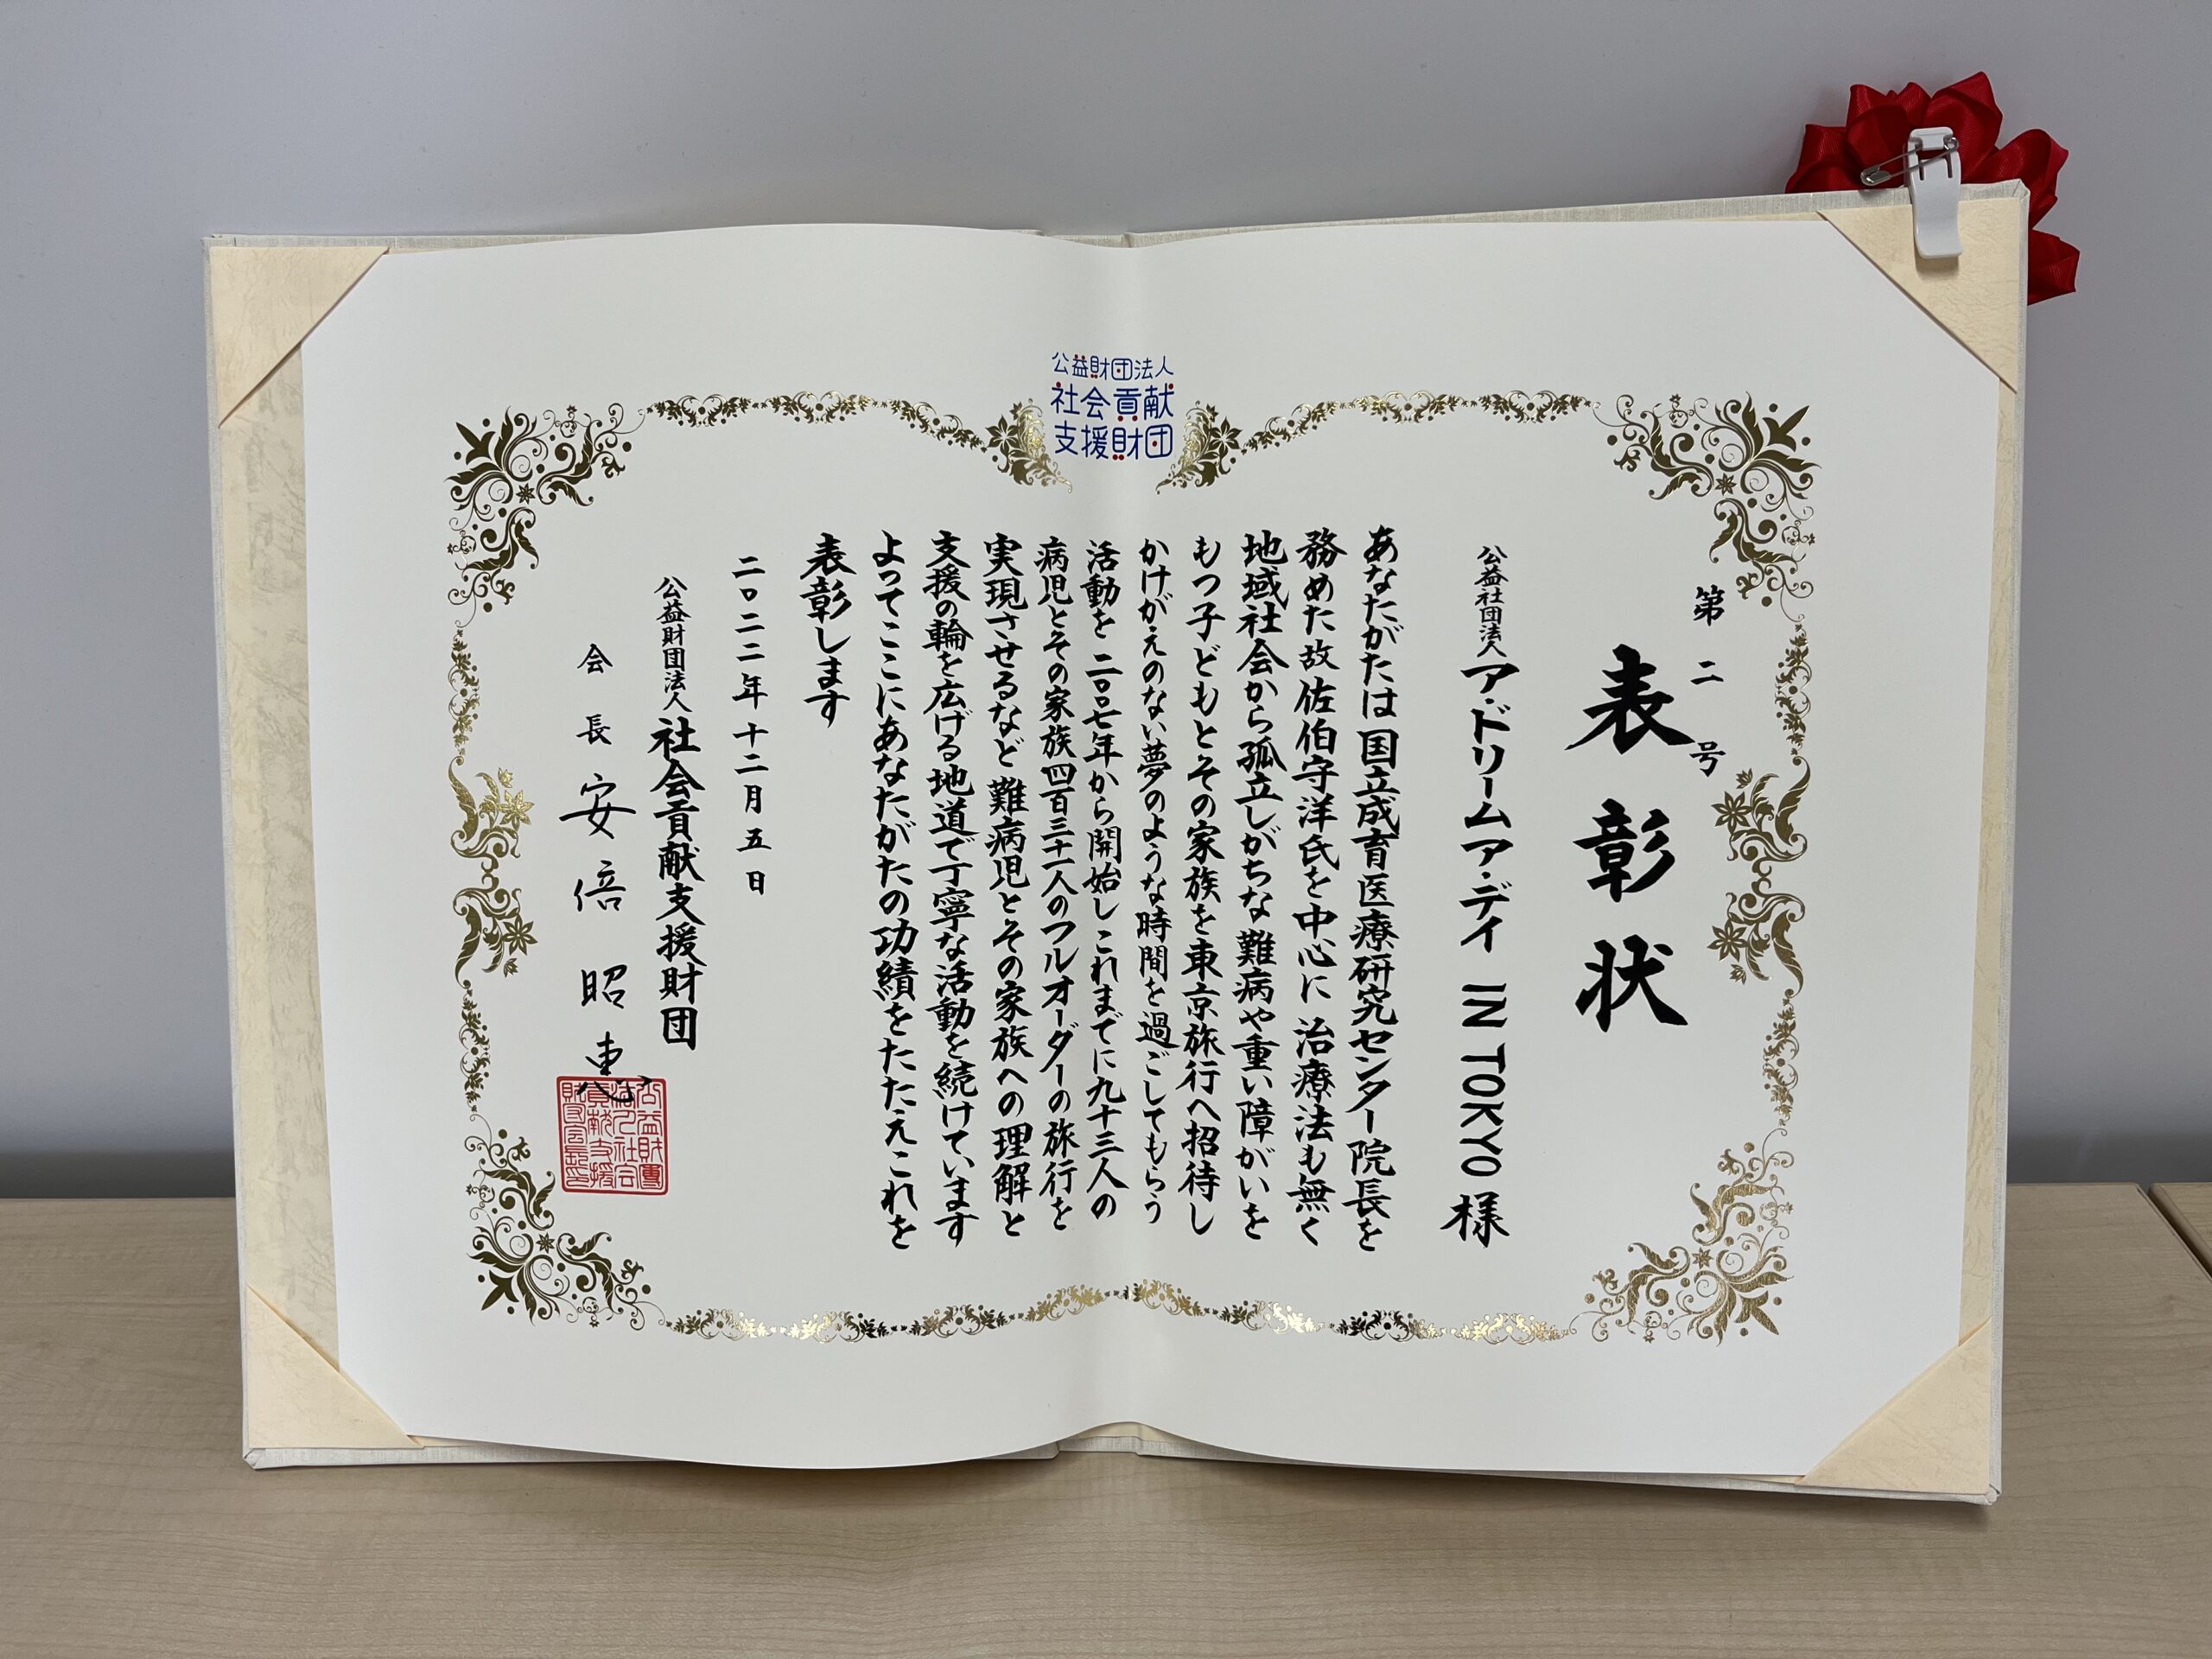 公益財団法人
社会貢献
支援財団
第二号
表彰状
公益社団法人 ア・ドリーム ア・デイ IN TOKYO 様
あなたがたは国立成育医療研究センター院長を
務めた故佐伯守洋氏を中心に 治療法も無く
地域社会から孤立しがちな 難病や重い障がいを
もつ子どもとその家族を東京旅行へ招待し
かけがえのない夢のような時間を過ごしてもらう
活動を 二〇〇七年から開始し これまでに九十三人の
病児とその家族四百三十一人のフルオーダーの旅行を
実現させるなど 難病児とその家族への理解と
支援の輪を広げる地道で丁寧な活動を続けています
よってここにあなたがたの功績をたたえこれを
表彰します
二〇二二年十二月五日
公益財団法人 社会貢献支援財団
会長 安倍昭恵